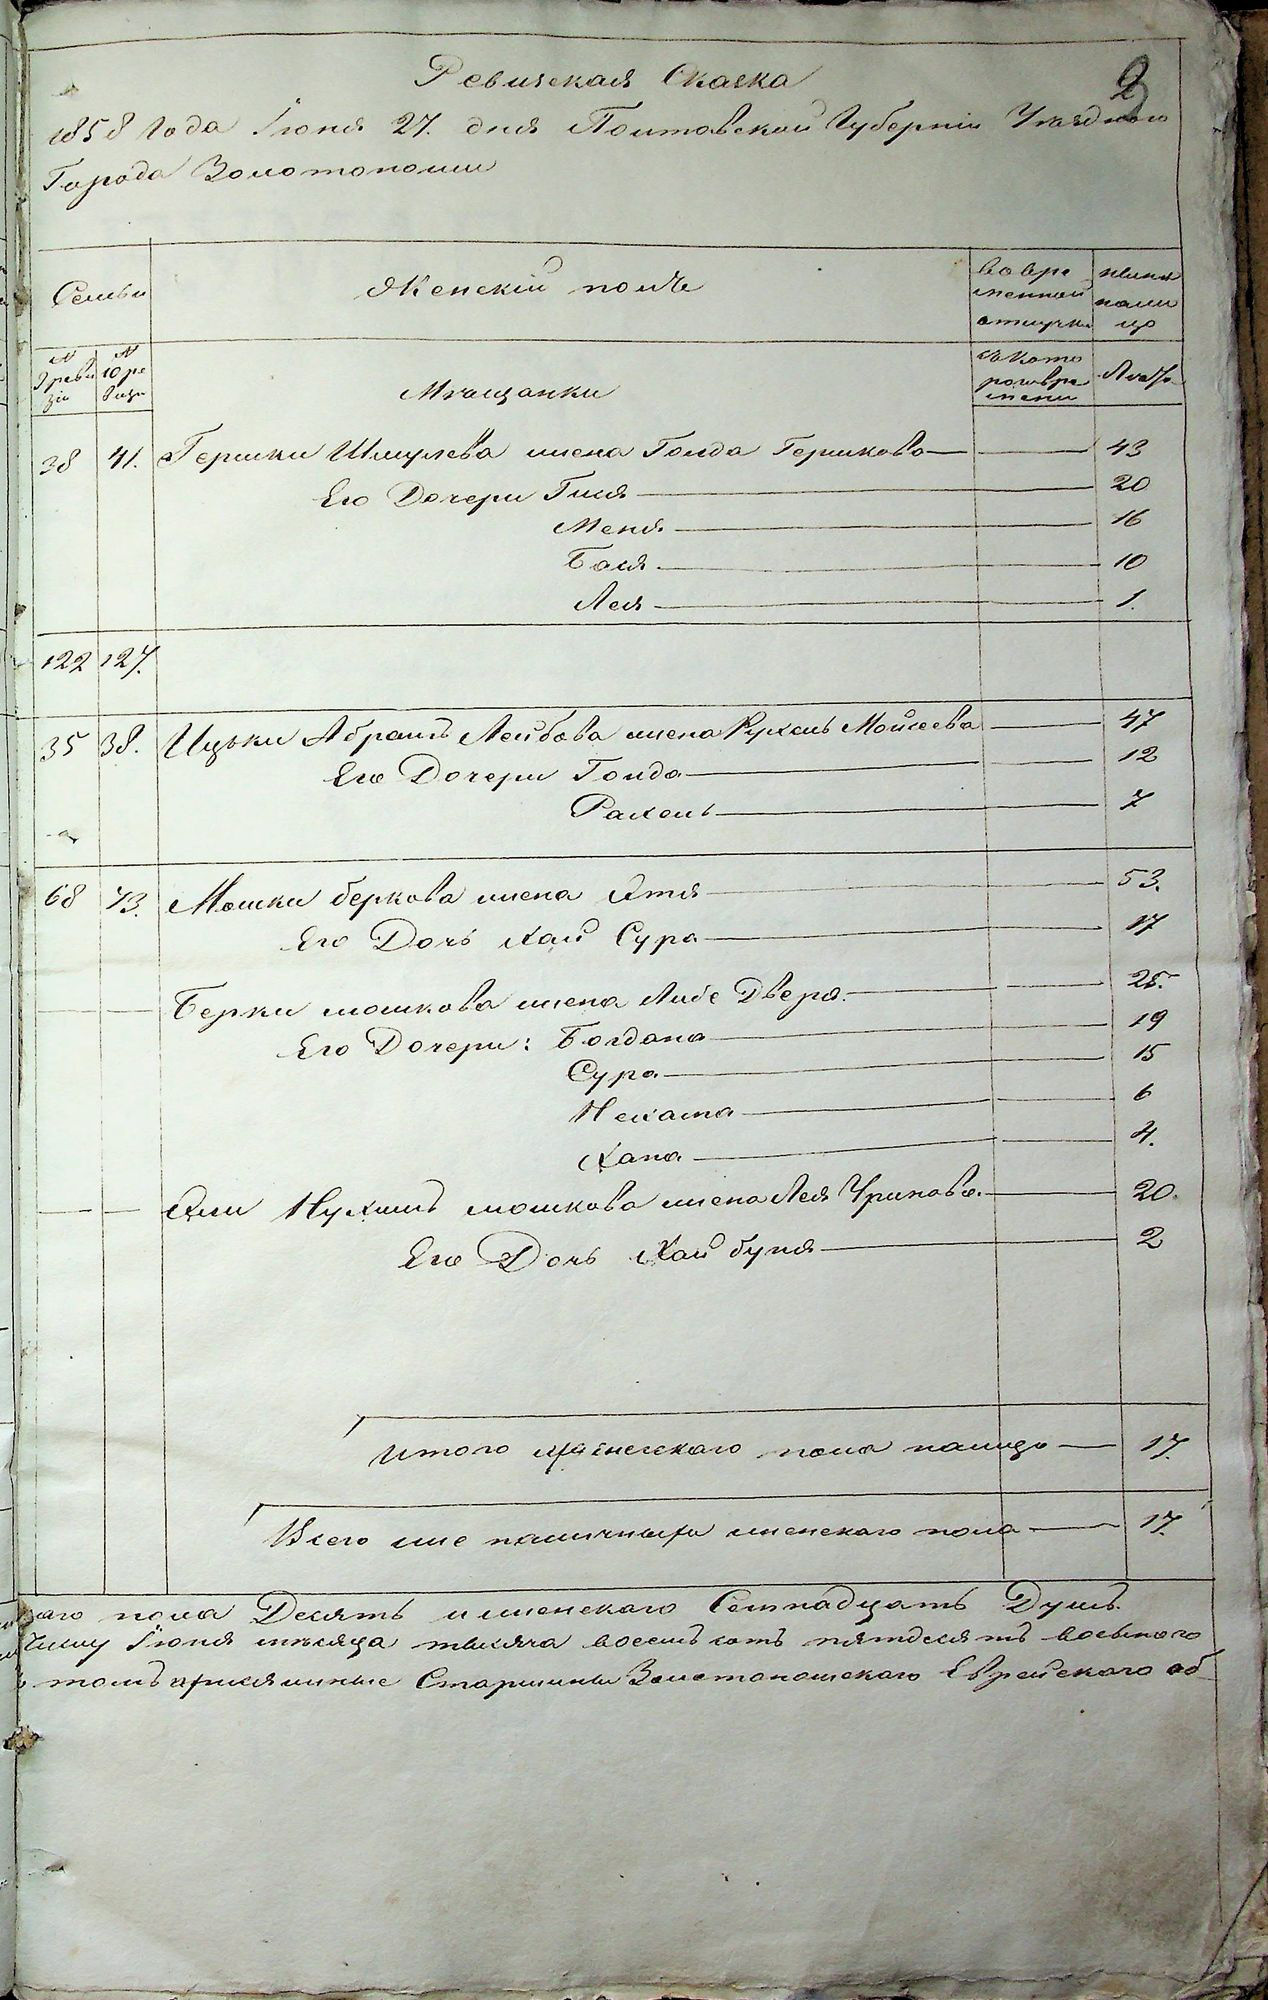 2
Ревизская Сказка
1858 Года Іюня 27. дня Полтавской Губерніи Уѣзднаго
Города Золотоноши
Семьи
Женскій полъ
во вре
менной
отлучки
ныни
нали
цо
№
9 реви
зіи
№
10 ре
визи
Мѣщанки
съ кото
рого вре
мени
Лѣта
38 41. Гершки Шмулева жена Голда Гершкова 43
Его Дочери Гися 20
Меня 16
Бася 10
Лея 1.
122 127.
35 38. Ицьки Абрамъ Лейбова жена Рухель Мойсеева 47
Его Дочери Голда 12
Рахель 7
68 73. Мошки беркова жена Этя 53.
Его Дочь Хай Сура 17
Берки мошкова жена Либе Двера. 25.
Его Дочери: Богдана 19
Сура 15
Нехама 6
Хана 4.
Эли Нухимъ мошкова жена Лея Урикова. 20.
Его Дочь Хай буня 2
Итого женскаго пола налицо 17.
Всего же наличныхъ женскаго пола 17.
каго пола Десять и женскаго Семнадцать Душъ.
Іюня мѣсяца тысяча восемь сотъ пятдесятъ восьмого
томъ присяжные Старшины Золотоношскаго Еврейскаго об